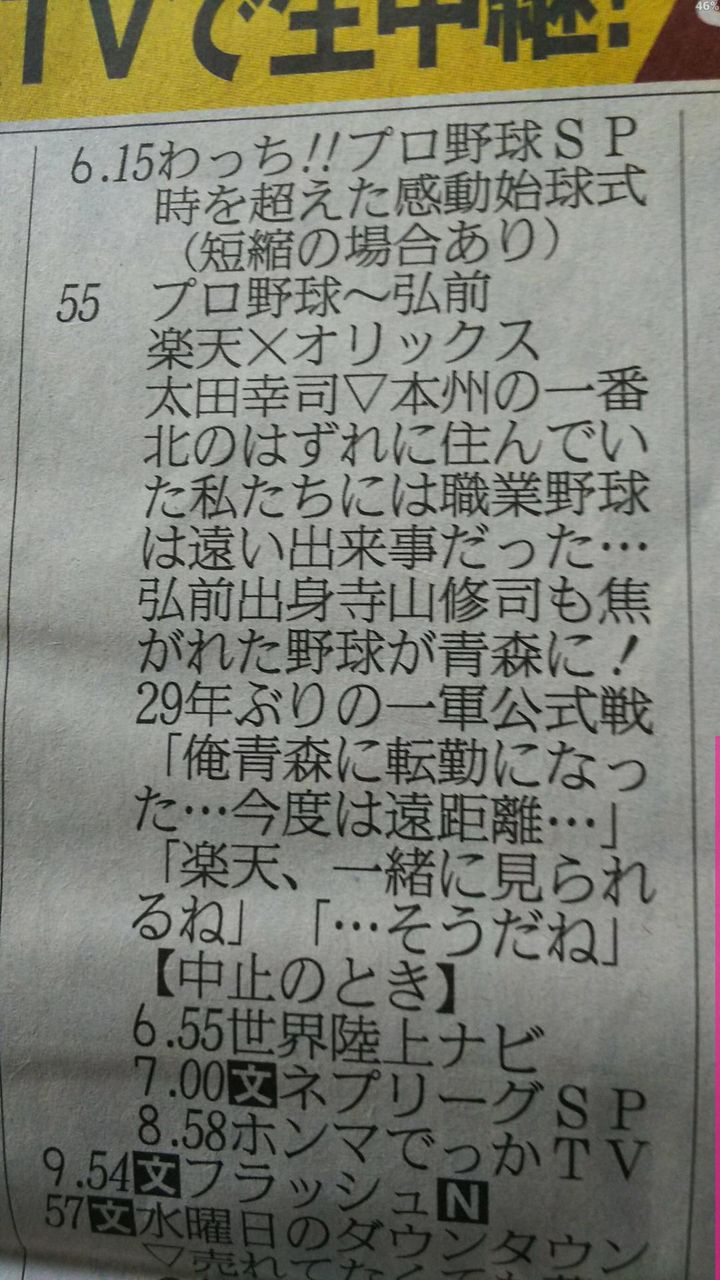 46%
TVで生中継!
6.15わっち!!プロ野球SP
時を超えた感動始球式
(短縮の場合あり)
55 プロ野球〜弘前
楽天×オリックス
太田幸司▽本州の一番
北のはずれに住んでい
た私たちには職業野球
は遠い出来事だった…
弘前出身寺山修司も焦
がれた野球が青森に!
29年ぶりの一軍公式戦
「俺青森に転勤になっ
た…今度は遠距離…」
「楽天、一緒に見られ
るね」「…そうだね」
【中止のとき】
6.55世界陸上ナビ
7.00文ネプリーグSP
8.58ホンマでっかTV
9.54文フラッシュN
57文水曜日のダウンタウン
▽売れてなくて